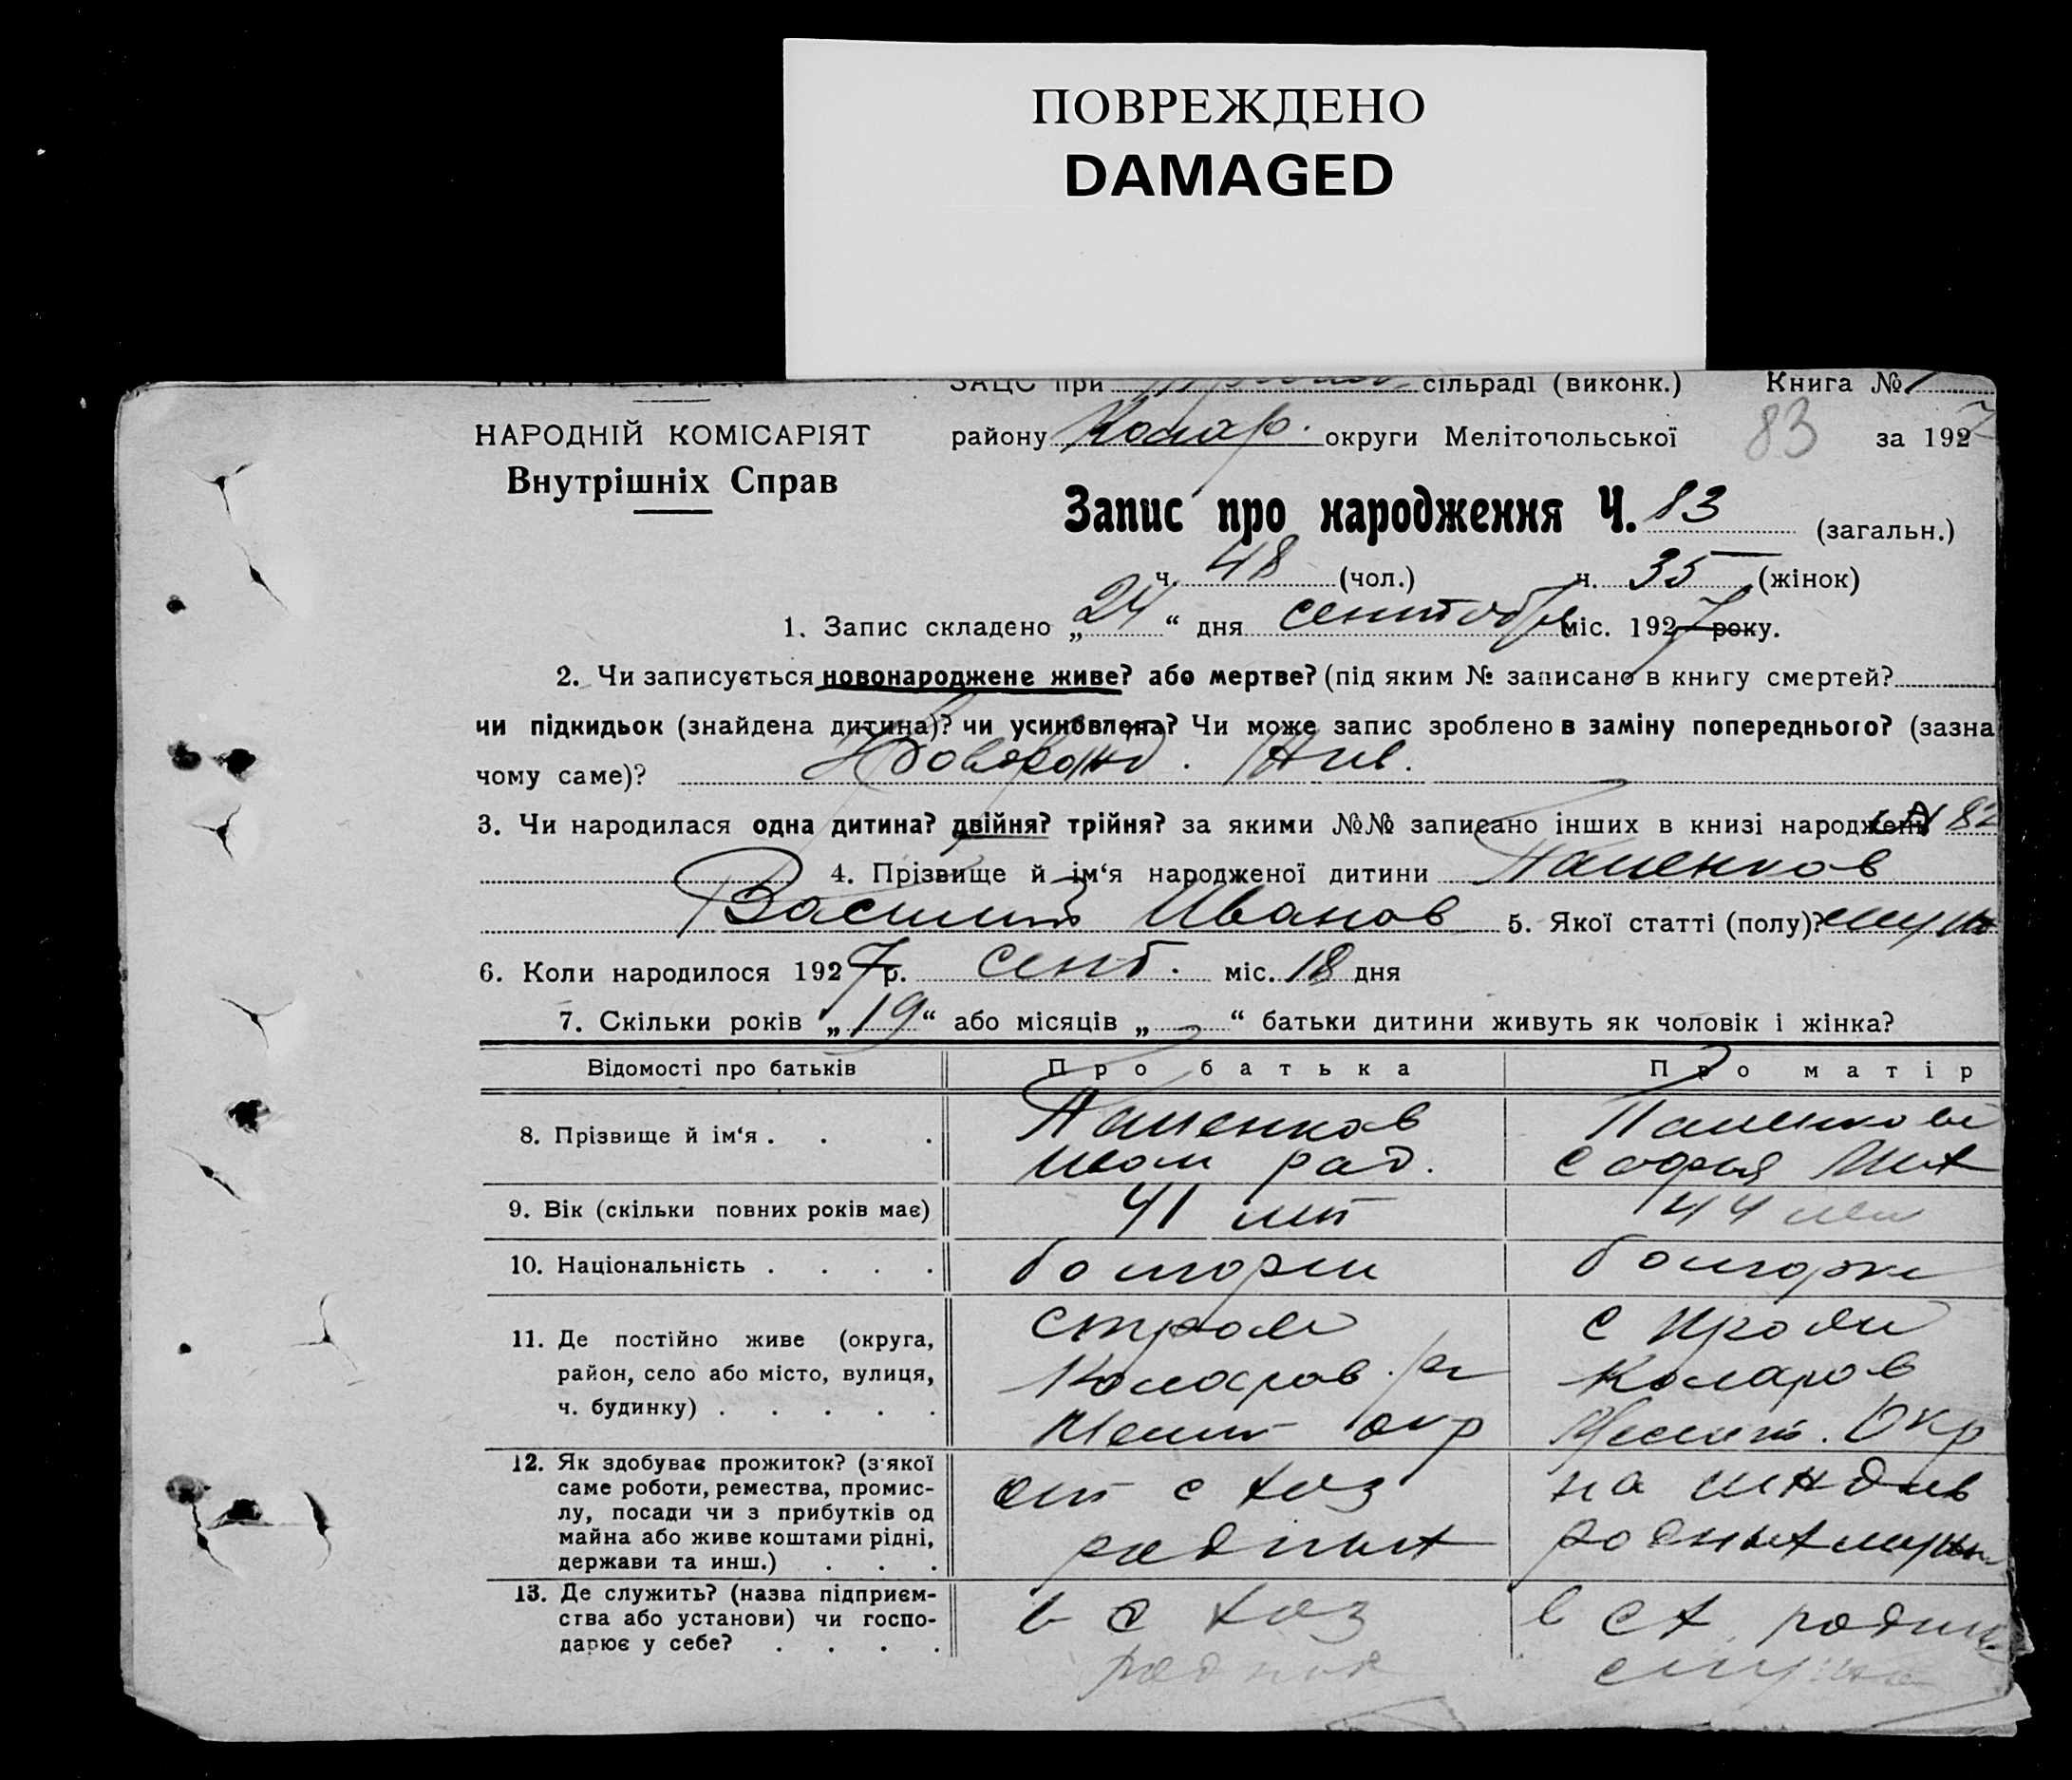 ПОВРЕЖДЕНО
DAMAGED
ЗАЦС при сільраді (виконк.) Книга № 1
НАРОДНІЙ КОМІСАРІЯТ
Внутрішніх Справ
району Колар. округи Мелітопольської 83 за 1927
Запис про народження Ч. 83 (загальн.)
ч. 48 (чол.) ч. 35 (жінок)
1. Запис складено „24“ дня сентября міс. 1927 року.
2. Чи записується новонароджене живе? або мертве? (під яким № записано в книгу смертей?
чи підкидьок (знайдена дитина)? чи усиновлена? Чи може запис зроблено в заміну попереднього? (зазна
чому саме)? Новорожд. жив.
3. Чи народилася одна дитина? двійня? трійня? за якими №№ записано інших в книзі народжень 82
4. Прізвище й ім‘я народженої дитини Пашенков
Василий Иванов 5. Якої статті (полу)? муж
6. Коли народилося 1927 р. сент. міс. 18 дня
7. Скільки років „19“ або місяців „ “ батьки дитини живуть як чоловік і жінка?
Відомості про батьків Про батька Про матір
8. Прізвище й ім‘я . . . Пашенков Пашенкова
София Мих
9. Вік (скільки повних років має) 41 лет 44 лет
10. Національність . . . . болгарин болгарка
11. Де постійно живе (округа, с Троян с Троян
район, село або місто, вулиця, Коларов. р Коларов
ч. будинку) . . . . . Мелит окр Мелит. Окр
12. Як здобуває прожиток? (з‘якої
саме роботи, ремества, промис- от с хоз на иждив
лу, посади чи з прибутків од
майна або живе коштами рідні, родных мужа
держави та инш.) . . .
13. Де служить? (назва підприєм- в с хоз в с х
ства або установи) чи госпо-
дарює у себе? . . . .